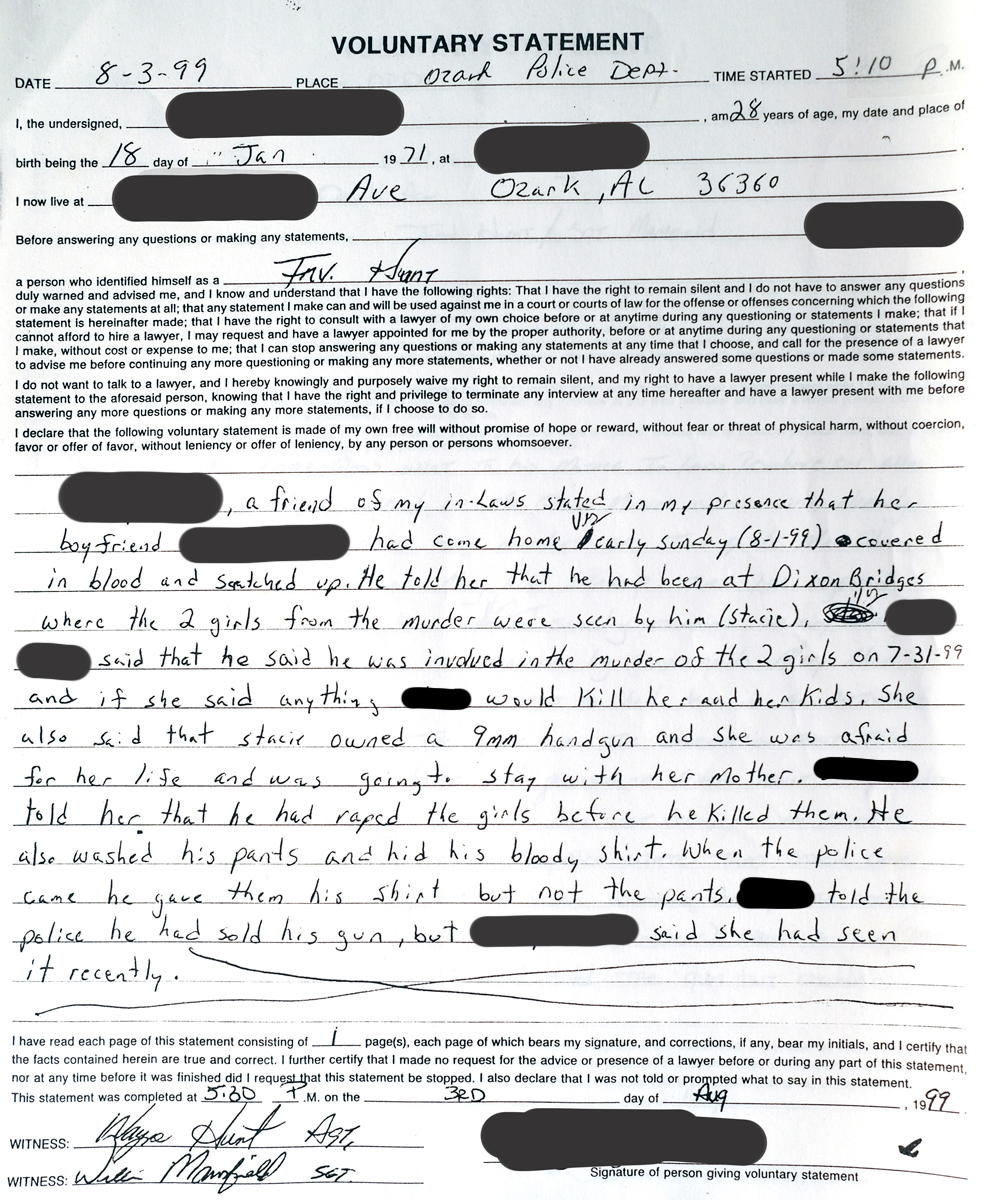 VOLUNTARY STATEMENT
DATE 8-3-99 PLACE Ozark Police Dept. TIME STARTED 5:10 P.M.
I, the undersigned, , am 28 years of age, my date and place of
birth being the 18 day of Jan 1971, at .
I now live at Ave Ozark, AL 36360 .
Before answering any questions or making any statements,
a person who identified himself as a Inv. Hunt ,
duly warned and advised me, and I know and understand that I have the following rights: That I have the right to remain silent and I do not have to answer any questions
or make any statements at all; that any statement I make can and will be used against me in a court or courts of law for the offense or offenses concerning which the following
statement is hereinafter made; that I have the right to consult with a lawyer of my own choice before or at anytime during any questioning or statements I make; that if I
cannot afford to hire a lawyer, I may request and have a lawyer appointed for me by the proper authority, before or at anytime during any questioning or statements that
I make, without cost or expense to me; that I can stop answering any questions or making any statements at any time that I choose, and call for the presence of a lawyer
to advise me before continuing any more questioning or making any more statements, whether or not I have already answered some questions or made some statements.
I do not want to talk to a lawyer, and I hereby knowingly and purposely waive my right to remain silent, and my right to have a lawyer present while I make the following
statement to the aforesaid person, knowing that I have the right and privilege to terminate any interview at any time hereafter and have a lawyer present with me before
answering any more questions or making any more statements, if I choose to do so.
I declare that the following voluntary statement is made of my own free will without promise of hope or reward, without fear or threat of physical harm, without coercion,
favor or offer of favor, without leniency or offer of leniency, by any person or persons whomsoever.
, a friend of my in-laws stated in my presence that her
boyfriend had come home early sunday (8-1-99) covered
in blood and scratched up. He told her that he had been at Dixon Bridges
where the 2 girls from the murder were seen by him (stacie),
said that he said he was involved in the murder of the 2 girls on 7-31-99
and if she said anything would Kill her and her Kids. She
also said that stacie owned a 9mm handgun and she was afraid
for her life and was going to stay with her Mother.
told her that he had raped the girls before he Killed them. He
also washed his pants and hid his bloody shirt. When the police
came he gave them his shirt but not the pants. told the
police he had sold his gun, but said she had seen
it recently.
I have read each page of this statement consisting of 1 page(s), each page of which bears my signature, and corrections, if any, bear my initials, and I certify that
the facts contained herein are true and correct. I further certify that I made no request for the advice or presence of a lawyer before or during any part of this statement,
nor at any time before it was finished did I request that this statement be stopped. I also declare that I was not told or prompted what to say in this statement.
This statement was completed at 5:30 P.M. on the 3RD day of Aug , 1999.
WITNESS: Wayne Hunt AGT.
WITNESS: Mansfield SGT
Signature of person giving voluntary statement